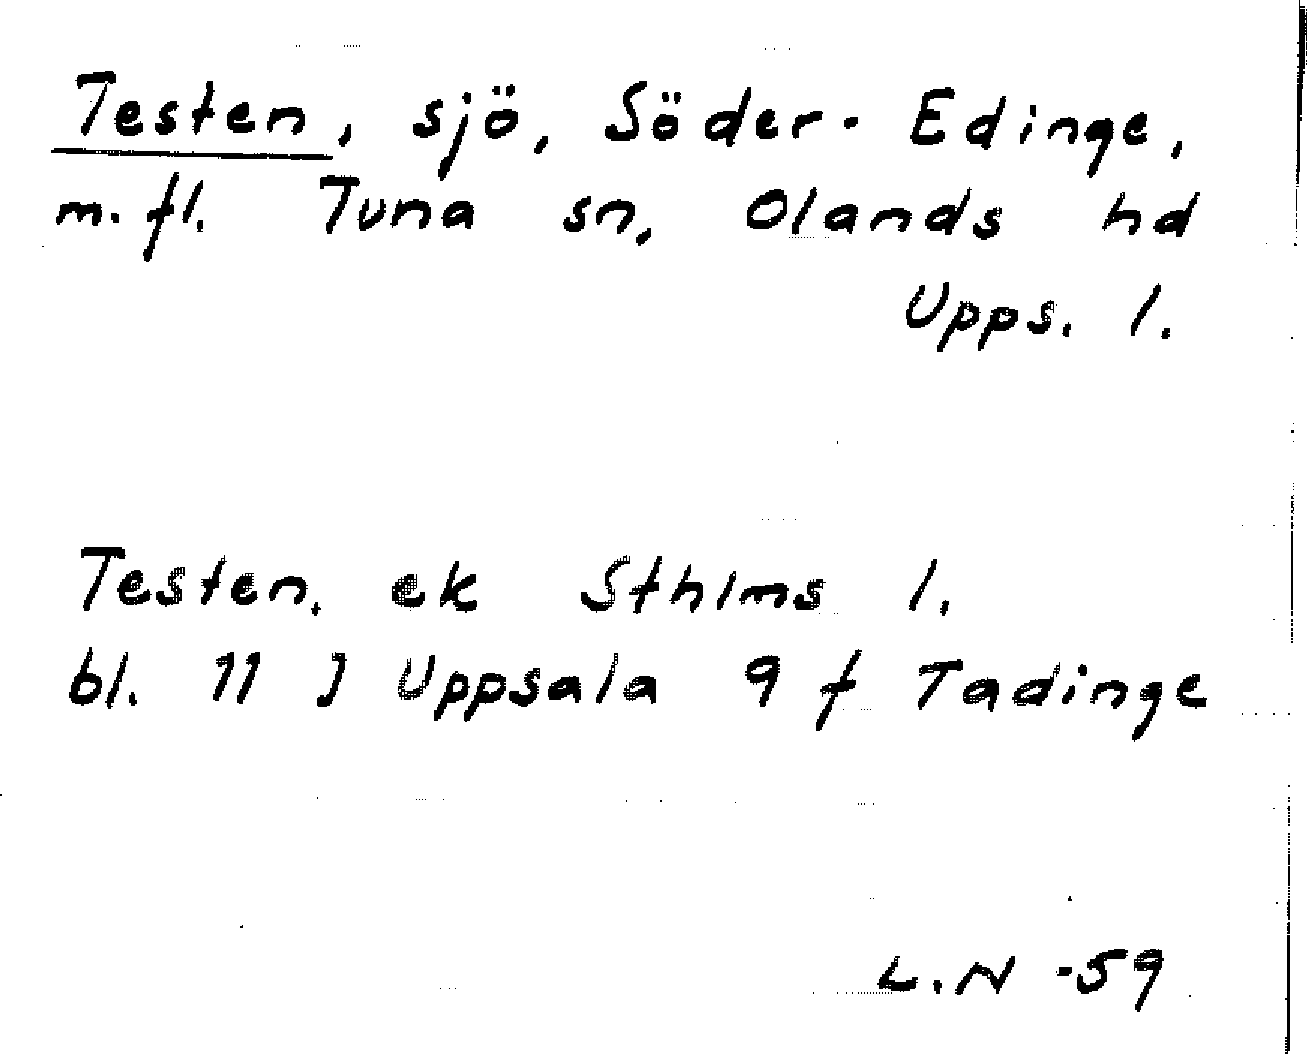 Testen, sjö, Söder-Edinge,
m.fl. Tuna sn, Olands hd
Upps. l.
Testen, ek Sthlms l.
bl. 11 J Uppsala 9 f Tadinge
L.N -59